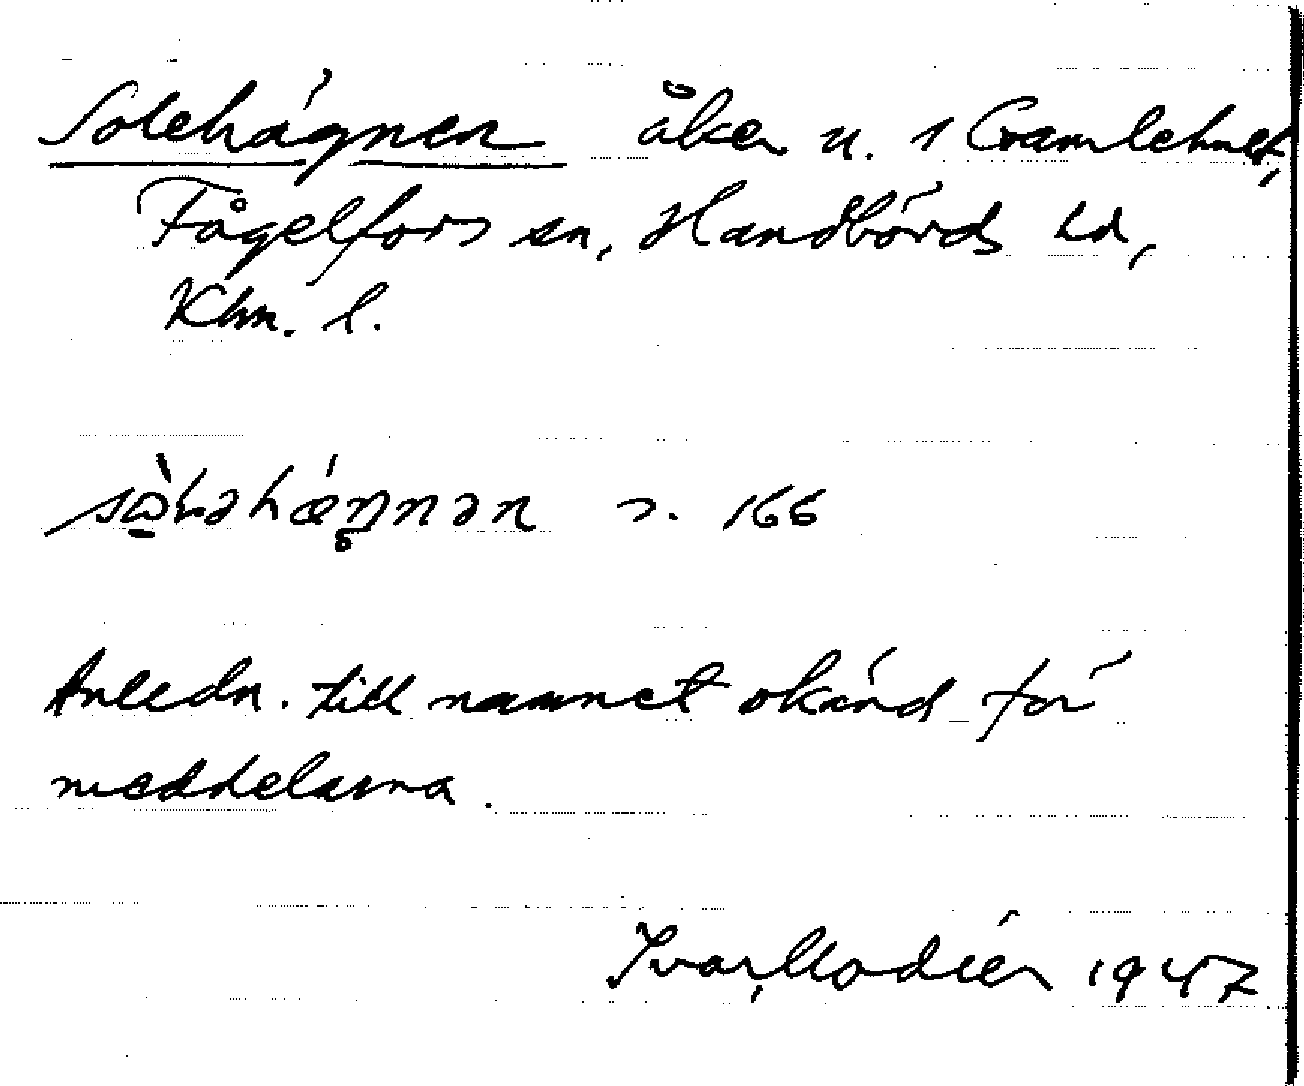 Solehägnen åker u. 1 Gamlehult,
Fågelfors sn, Handbörds hd,
Klm. l.
s. 166
Anledn. till namnet okänd för
meddelarna.
Ivar Modéer 1947